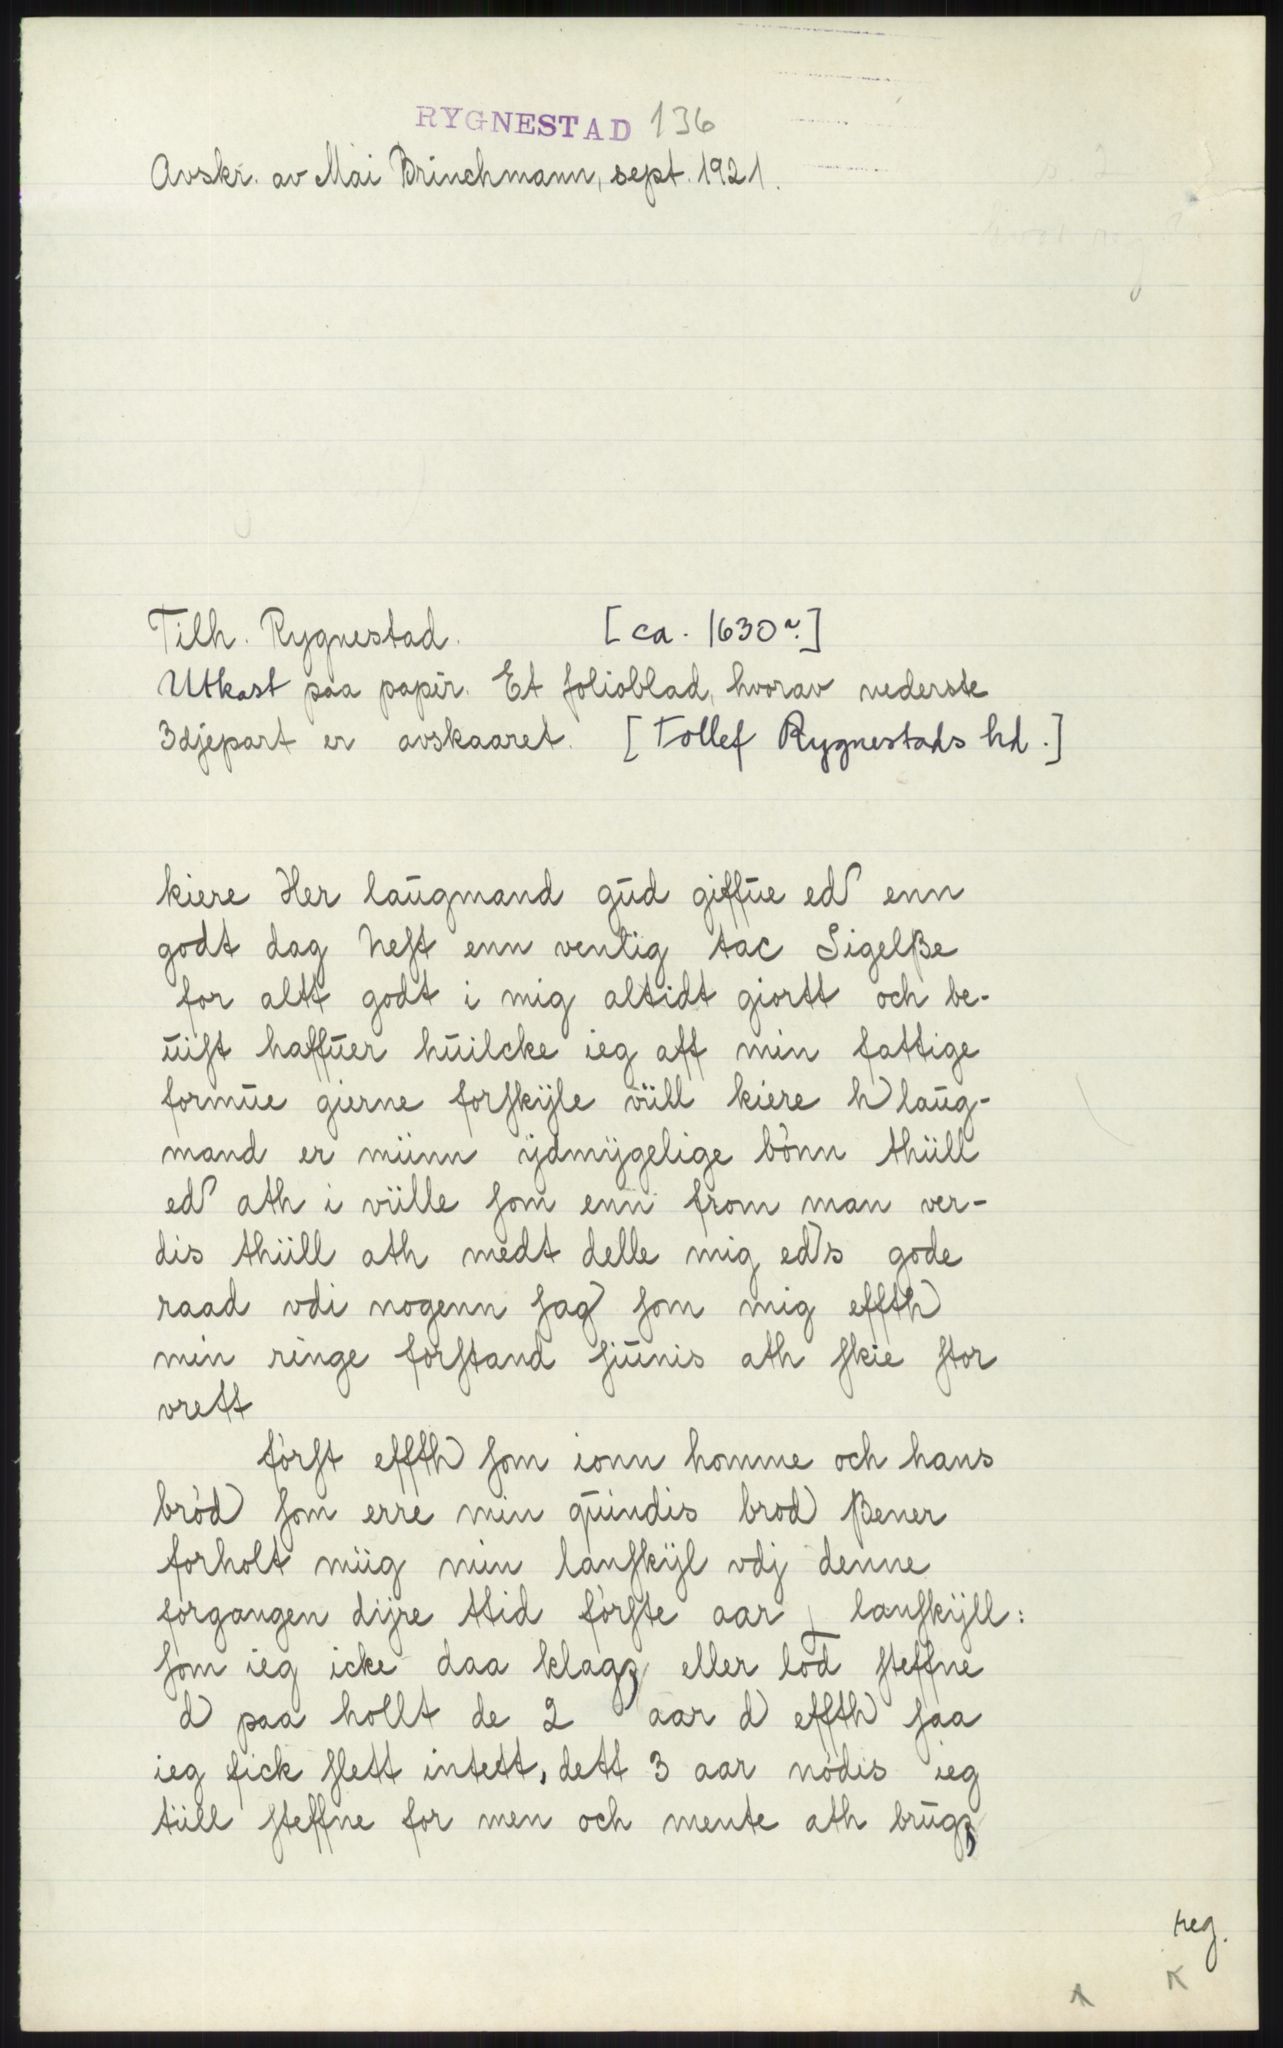 RYGNESTAD 136
Avskr. av Mai Brinchmann, sept. 1921.
Tilh. Rygnestad. [ca. 1630?]
Utkast paa papir. Et folioblad, hvorav nederste
3djepart er avskaaret. [Tollef Rygnestads hd.]
kiere Her laŭgmand gŭd giffŭe ed enn
godt dag neſt enn venlig tac Sigelẞe
for altt godt i mig altidt giortt och be-
ŭiſt haffŭer hŭilcke ieg aff min fattige
formŭe gierne forſkÿle vüll kiere h laŭg-
mand er münn ÿdmÿgelige bönn thüll
ed ath i vülle ſom enn from man ver-
dis thüll ath medt delle mig eds gode
raad vdi nogenn ſag ſom mig effth
min ringe forſtand ſiŭnis ath ſkie ſtor
vrett
förſt effth ſom ionn homme och hans
bröd ſom erre min qŭindis brod ẞener
forholt müg min lanſkÿl vdj denne
forgangen dÿre ttid förſte aar lanſkÿll:
ſom ieg icke daa klag eller lod ſteffne
d paa hollt de 2 aar d effth ſaa
ieg fick ſlett intett, dett 3 aar nödis ieg
tüll ſteffne for men och mente ath brŭg
reg.